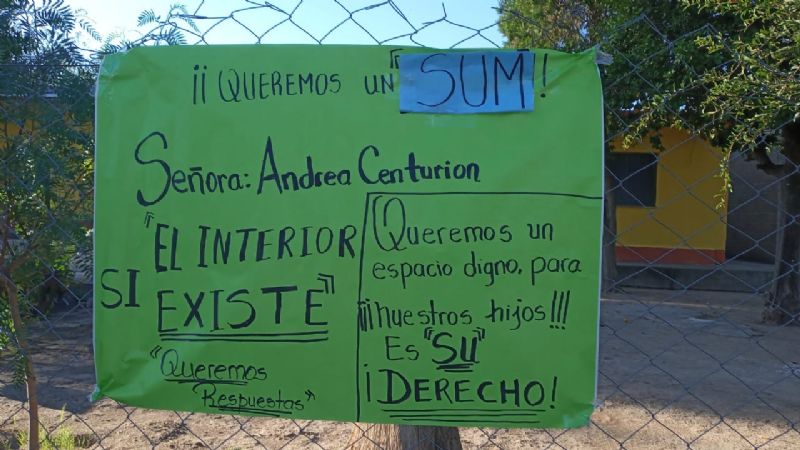 ¡¡ QUEREMOS UN "SUM"!
Señora: Andrea Centurion
"EL INTERIOR
SI EXISTE"
"Queremos
Respuestas"
Queremos un
espacio digno, para
¡¡¡nuestros hijos!!!
Es "SU"
¡DERECHO!